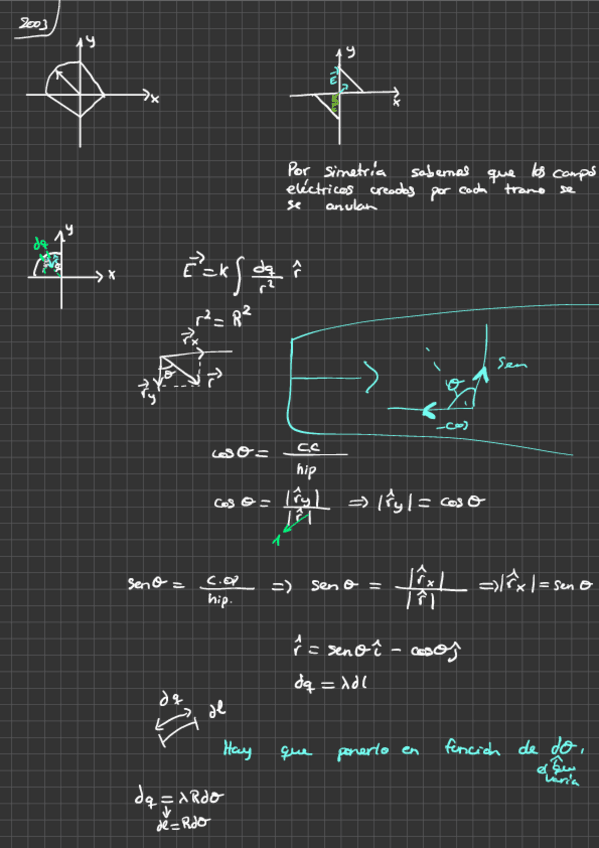 2003
y
x
y
E
x
Por simetría sabemos que los campos
eléctricos creados por cada tramo se
se anulan
dq
y
x
E = k ∫ dq/r² r̂
r² = R²
r⃗x
θ
r⃗y
r⃗
θ
sen
-cos
cos θ = c.c / hip
cos θ = |r̂y| / |r̂| => |r̂y| = cos θ
1
sen θ = c.op / hip. => sen θ = |r̂x| / |r̂| => |r̂x| = sen θ
r̂ = sen θ î - cos θ ĵ
dq = λdl
dq
dl
Hay que ponerlo en función de dθ,
varía
dq = λRdθ
dl = Rdθ